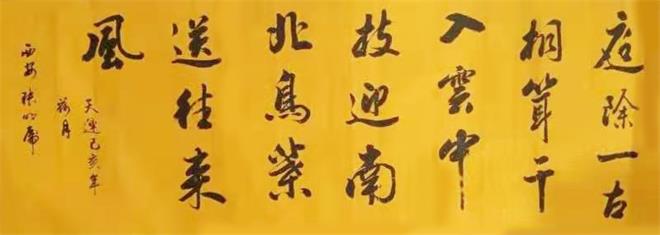 庭除一古
桐耸干
入雲中
枝迎南
北鳥葉
送往来
風
天運己亥年
月
西安